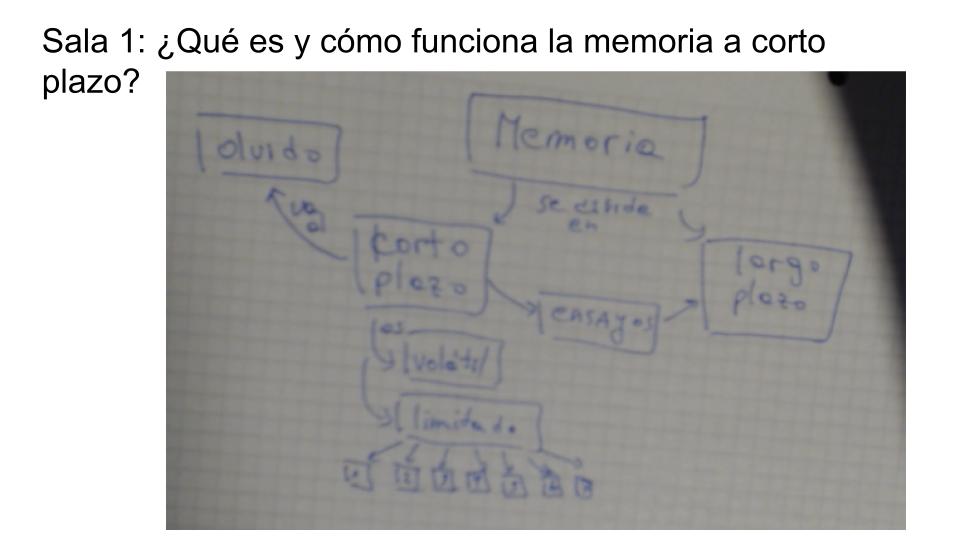 Sala 1: ¿Qué es y cómo funciona la memoria a corto
plazo?
Memoria
olvido
se divide
en
va
a
corto
plazo
largo
plazo
ensayos
es
volátil
limitado
1 2 3 4 5 6 7